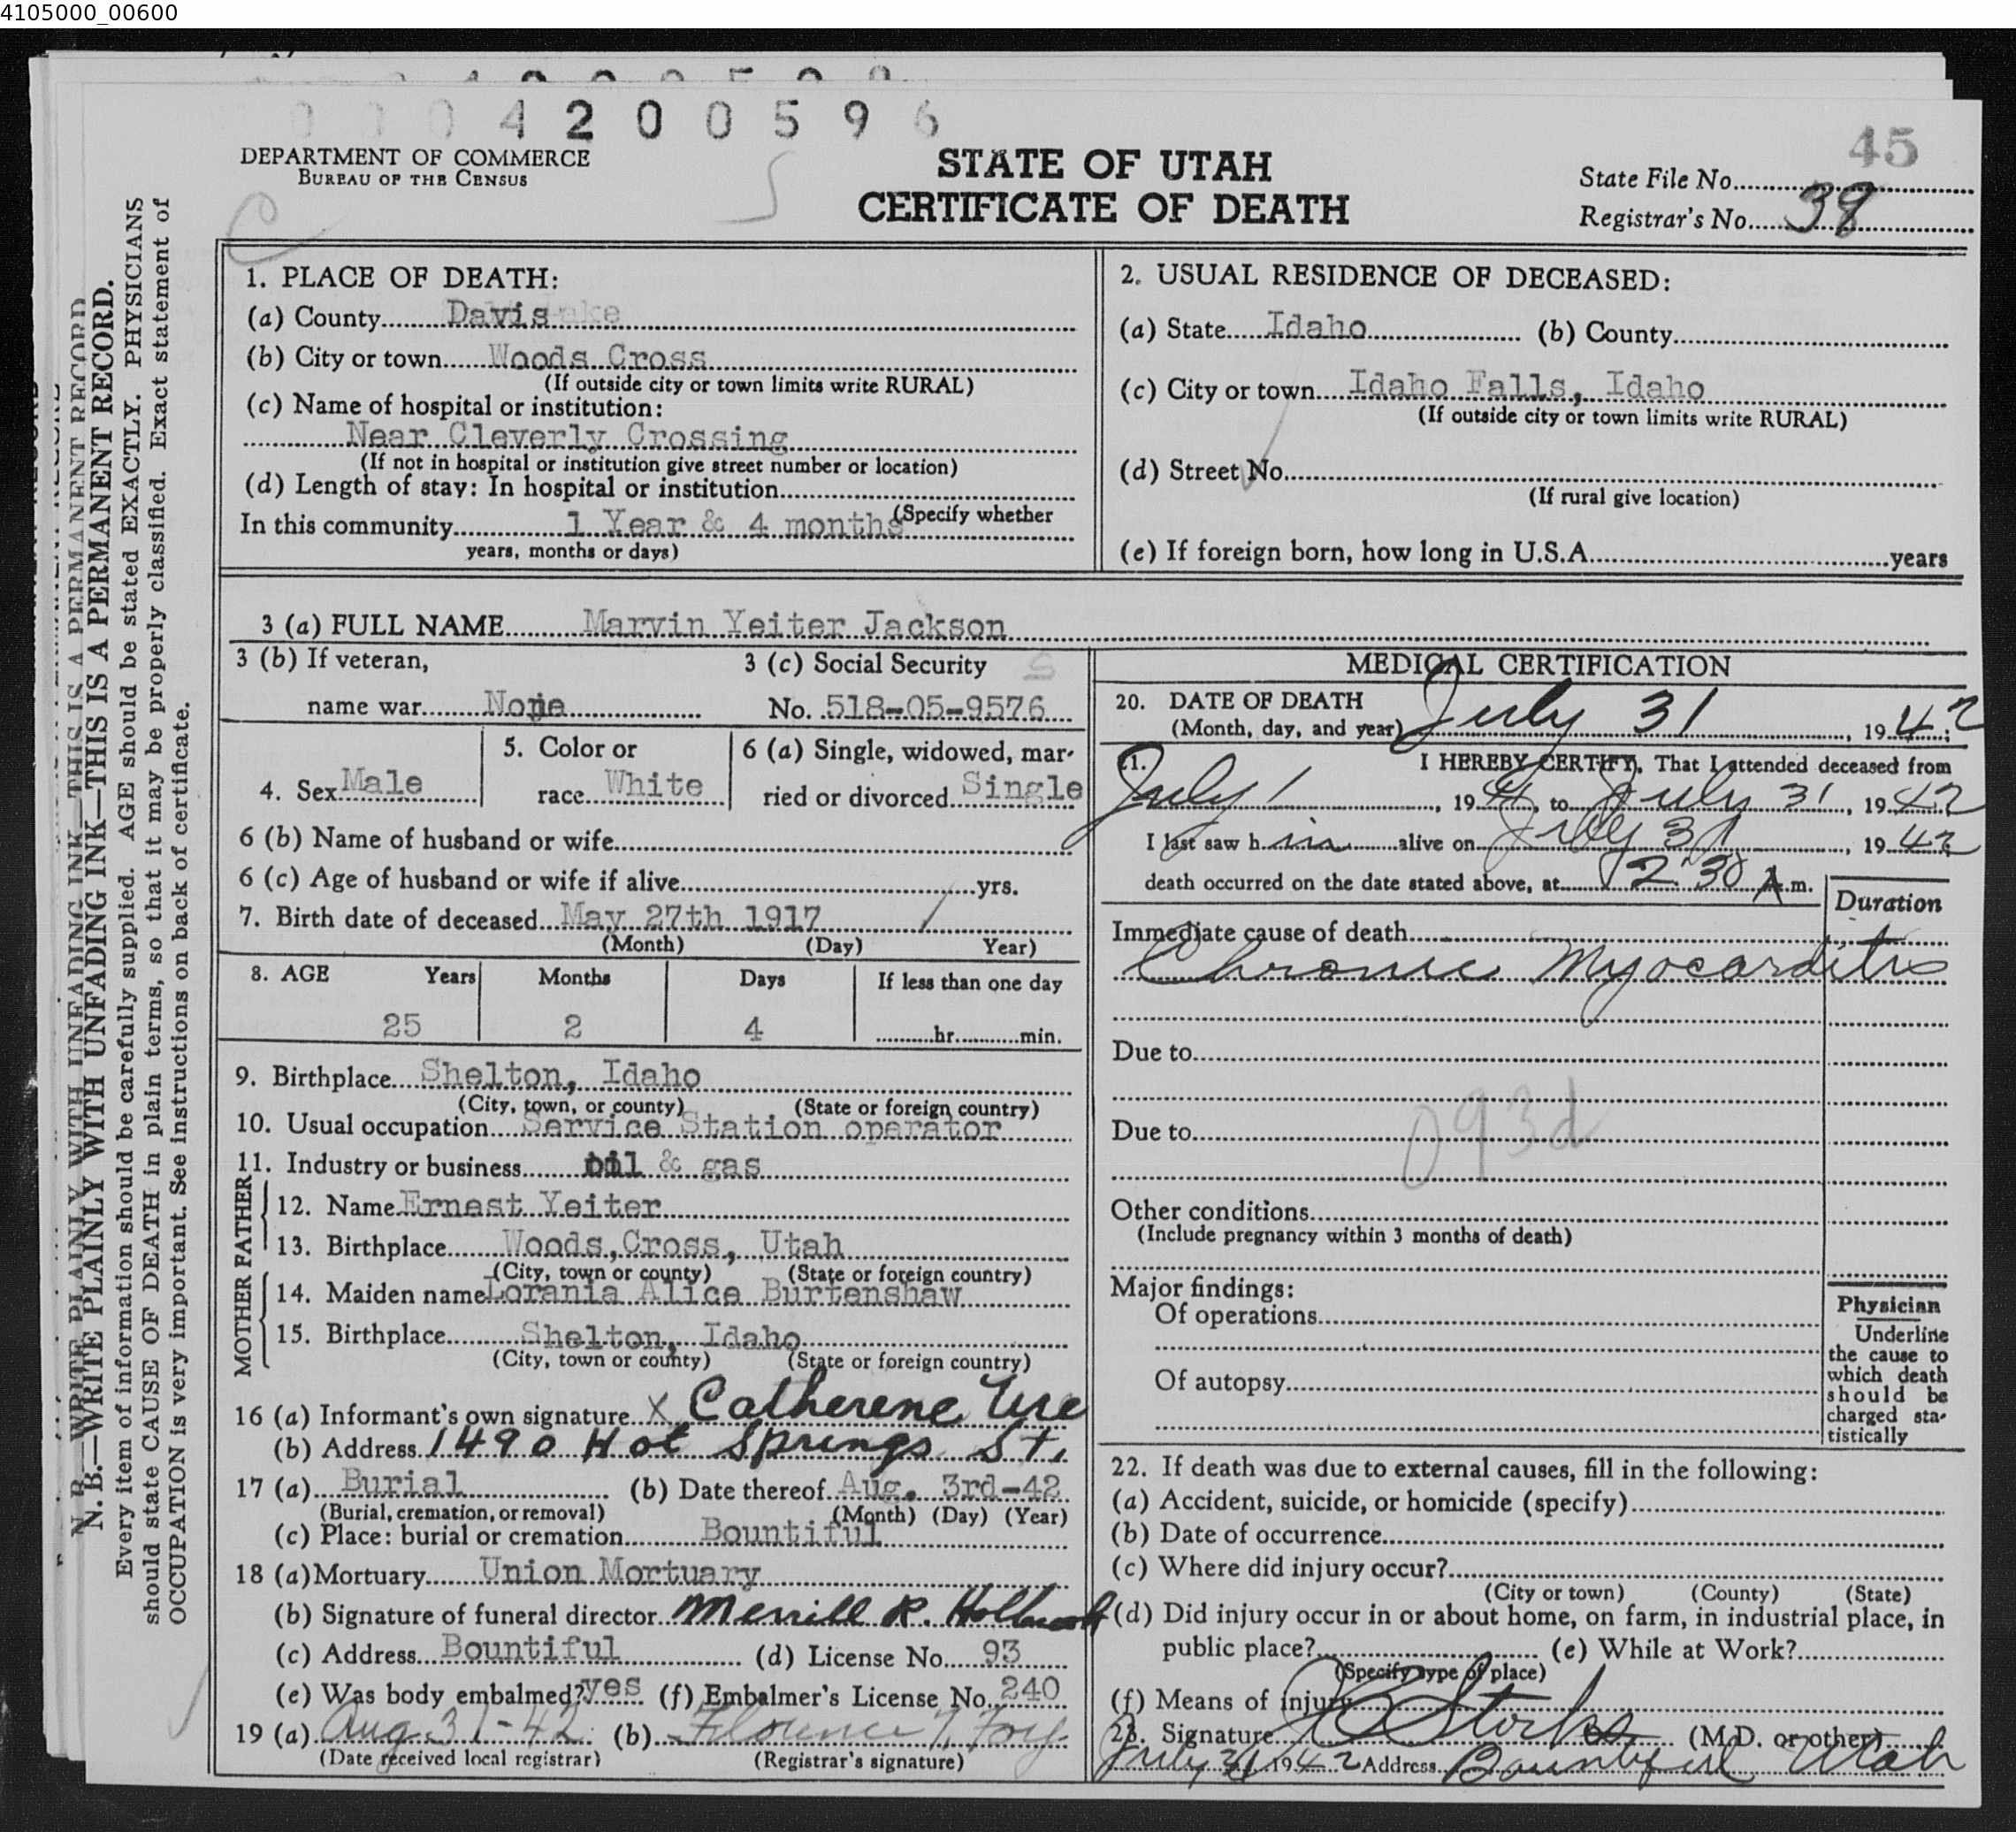 4105000_00600
0004200596
45
DEPARTMENT OF COMMERCE
BUREAU OF THE CENSUS
STATE OF UTAH
CERTIFICATE OF DEATH
State File No.
Registrar's No. 38
N. B.—WRITE PLAINLY WITH UNFADING INK—THIS IS A PERMANENT RECORD.
Every item of information should be carefully supplied. AGE should be stated EXACTLY. PHYSICIANS
should state CAUSE OF DEATH in plain terms, so that it may be properly classified. Exact statement of
OCCUPATION is very important. See instructions on back of certificate.
1. PLACE OF DEATH:
(a) County Davis
(b) City or town Woods Cross
(If outside city or town limits write RURAL)
(c) Name of hospital or institution:
Near Cleverly Crossing
(If not in hospital or institution give street number or location)
(d) Length of stay: In hospital or institution
(Specify whether
In this community 1 Year & 4 months
years, months or days)
2. USUAL RESIDENCE OF DECEASED:
(a) State Idaho (b) County
(c) City or town Idaho Falls, Idaho
(If outside city or town limits write RURAL)
(d) Street No.
(If rural give location)
(e) If foreign born, how long in U.S.A. years
3 (a) FULL NAME Marvin Yeiter Jackson
3 (b) If veteran, 3 (c) Social Security
name war None No. 518-05-9576
4. Sex Male
5. Color or
race White
6 (a) Single, widowed, mar-
ried or divorced Single
6 (b) Name of husband or wife
6 (c) Age of husband or wife if alive yrs.
7. Birth date of deceased May 27th 1917
(Month) (Day) Year)
8. AGE Years Months Days If less than one day
25 2 4 hr. min.
9. Birthplace Shelton, Idaho
(City, town, or county) (State or foreign country)
10. Usual occupation Service Station operator
11. Industry or business oil & gas
FATHER
12. Name Ernest Yeiter
13. Birthplace Woods Cross, Utah
(City, town or county) (State or foreign country)
MOTHER
14. Maiden name Lorania Alice Burtenshaw
15. Birthplace Shelton, Idaho
(City, town or county) (State or foreign country)
16 (a) Informant's own signature X Catherene Ure
(b) Address 1490 Hot Springs St.
17 (a) Burial (b) Date thereof Aug. 3rd-42
(Burial, cremation, or removal) (Month) (Day) (Year)
(c) Place: burial or cremation Bountiful
18 (a) Mortuary Union Mortuary
(b) Signature of funeral director Merrill R. Holbrook
(c) Address Bountiful (d) License No. 93
(e) Was body embalmed? yes (f) Embalmer's License No. 240
19 (a) Aug 31-42 (b) Florence Foy
(Date received local registrar) (Registrar's signature)
MEDICAL CERTIFICATION
20. DATE OF DEATH
(Month, day, and year) July 31, 1942
21. I HEREBY CERTIFY, That I attended deceased from
July 1, 19 to July 31, 1942
I last saw him alive on July 31, 1942
death occurred on the date stated above, at 12:30 A.m.
Duration
Immediate cause of death
Chronic Myocarditis
Due to
Due to 093d
Other conditions
(Include pregnancy within 3 months of death)
Major findings:
Of operations
Of autopsy
Physician
Underline
the cause to
which death
should be
charged sta-
tistically
22. If death was due to external causes, fill in the following:
(a) Accident, suicide, or homicide (specify)
(b) Date of occurrence
(c) Where did injury occur?
(City or town) (County) (State)
(d) Did injury occur in or about home, on farm, in industrial place, in
public place? (e) While at Work?
(Specify type of place)
(f) Means of injury
23. Signature Stocks (M.D. or other)
July 31 1942 Address Bountiful Utah